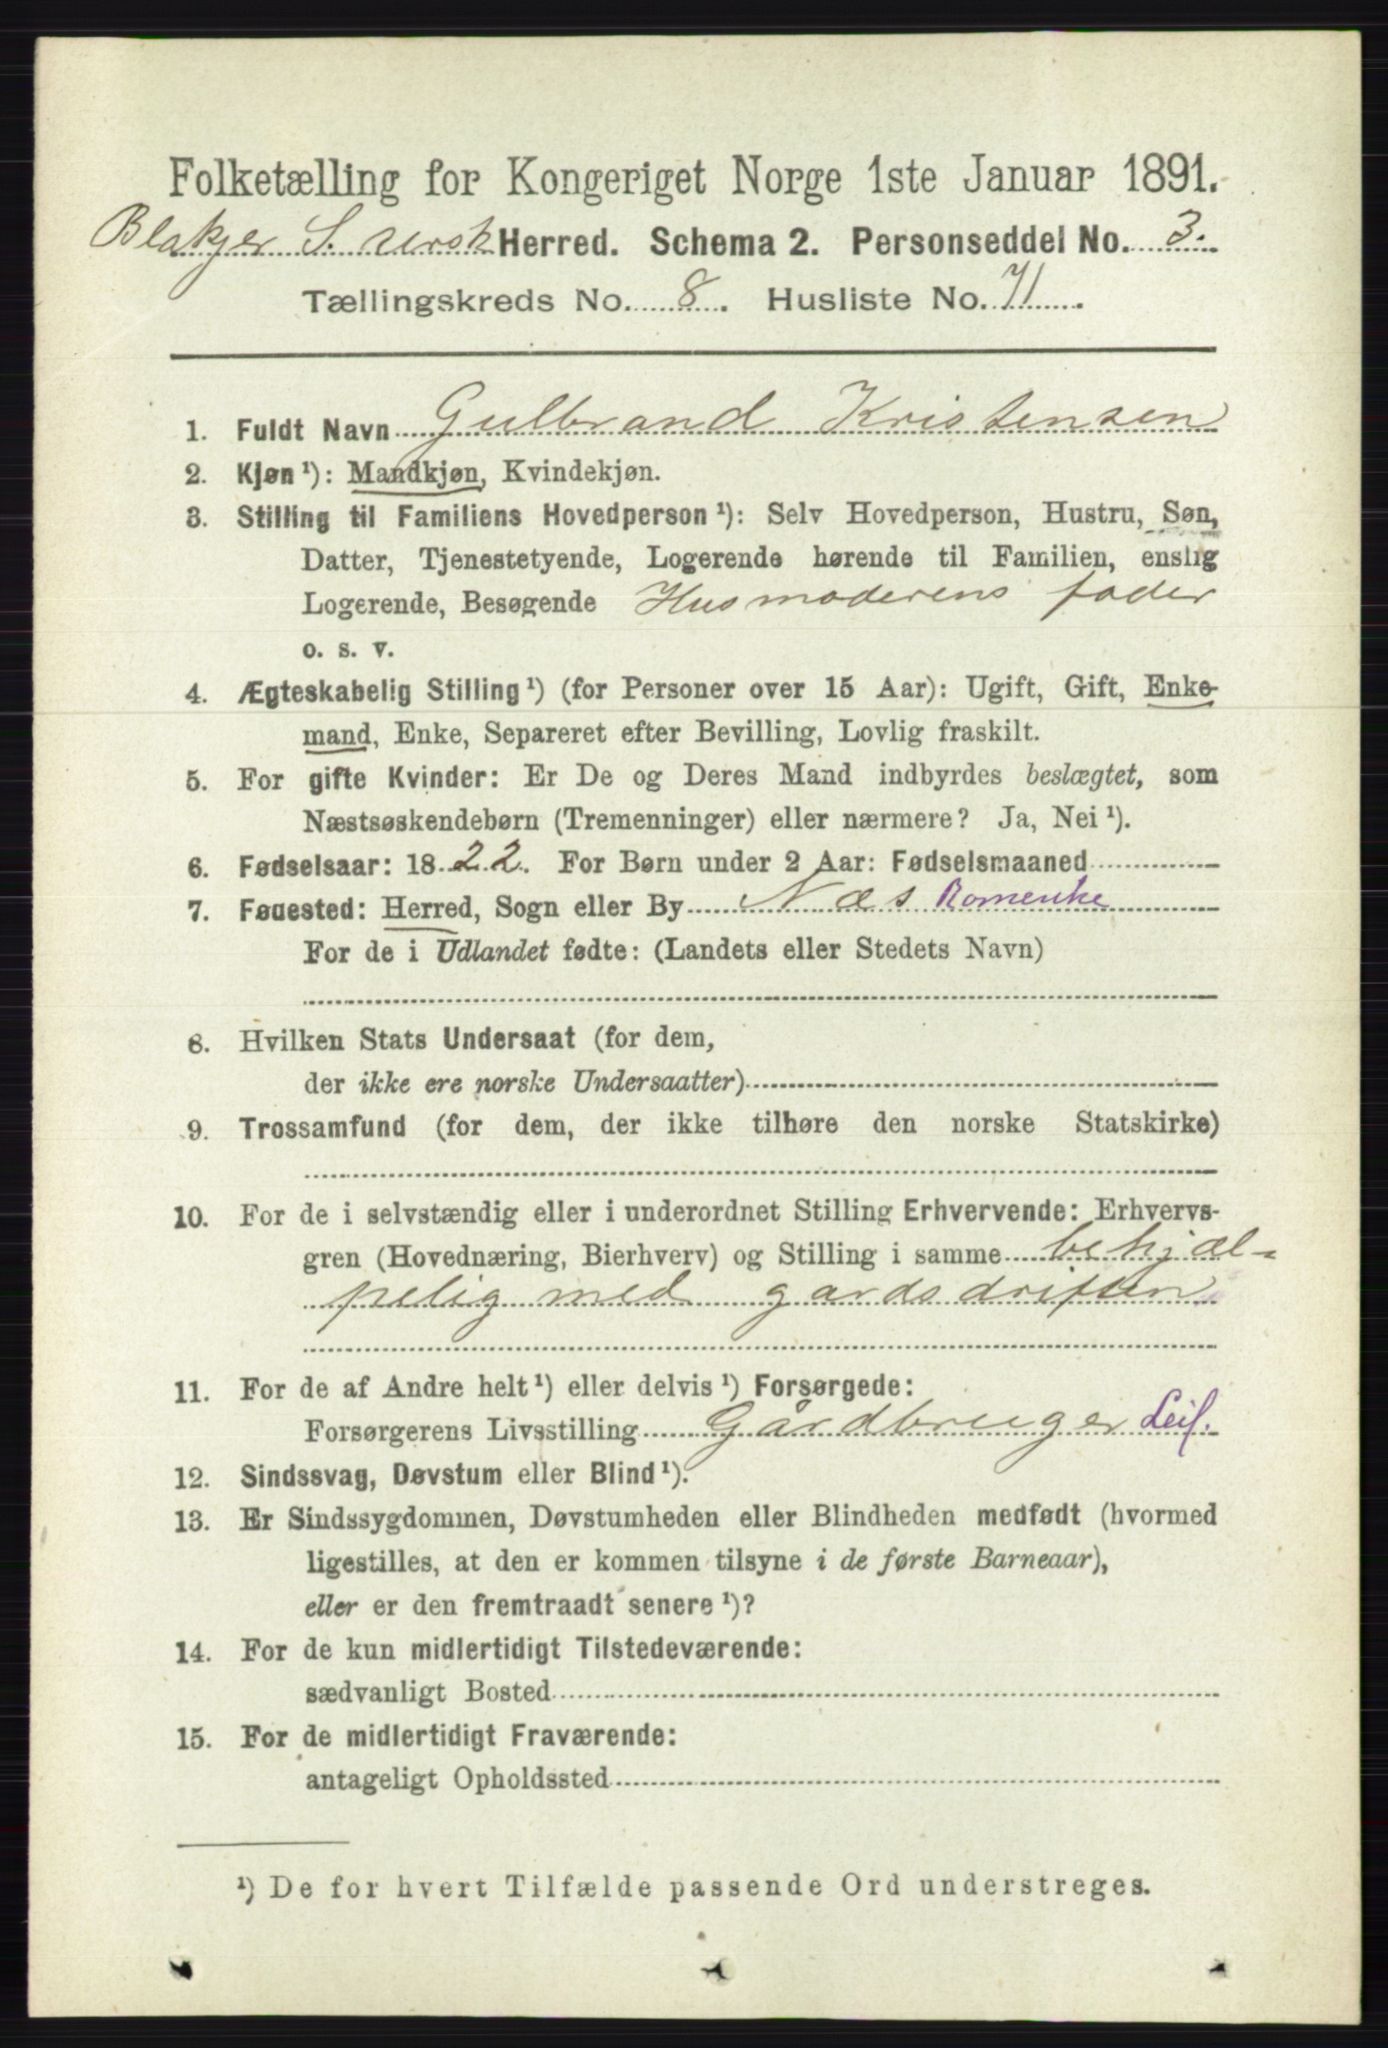 Folketælling for Kongeriget Norge 1ste Januar 1891.
Blakjer S. Ursk Herred. Schema 2. Personseddel No. 3.
Tællingskreds No. 8. Husliste No. 71.
1. Fuldt Navn Gulbrand Kristensen
2. Kjøn ¹): Mandkjøn, Kvindekjøn.
3. Stilling til Familiens Hovedperson ¹): Selv Hovedperson, Hustru, Søn,
Datter, Tjenestetyende, Logerende hørende til Familien, enslig
Logerende, Besøgende Husmoderens fader
o. s. v.
4. Ægteskabelig Stilling ¹) (for Personer over 15 Aar): Ugift, Gift, Enke-
mand, Enke, Separeret efter Bevilling, Lovlig fraskilt.
5. For gifte Kvinder: Er De og Deres Mand indbyrdes beslægtet, som
Næstsøskendebørn (Tremenninger) eller nærmere? Ja, Nei ¹).
6. Fødselsaar: 1822. For Børn under 2 Aar: Fødselsmaaned
7. Fødested: Herred, Sogn eller By Næs Romerike
For de i Udlandet fødte: (Landets eller Stedets Navn)
8. Hvilken Stats Undersaat (for dem,
der ikke ere norske Undersaatter)
9. Trossamfund (for dem, der ikke tilhøre den norske Statskirke)
10. For de i selvstændig eller i underordnet Stilling Erhvervende: Erhvervs-
gren (Hovednæring, Bierhverv) og Stilling i samme behjæl-
pelig med gardsdriften
11. For de af Andre helt ¹) eller delvis ¹) Forsørgede:
Forsørgerens Livsstilling Gårdbruger Leil.
12. Sindssvag, Døvstum eller Blind ¹).
13. Er Sindssygdommen, Døvstumheden eller Blindheden medfødt (hvormed
ligestilles, at den er kommen tilsyne i de første Barneaar),
eller er den fremtraadt senere ¹)?
14. For de kun midlertidigt Tilstedeværende:
sædvanligt Bosted
15. For de midlertidigt Fraværende:
antageligt Opholdssted
¹) De for hvert Tilfælde passende Ord understreges.